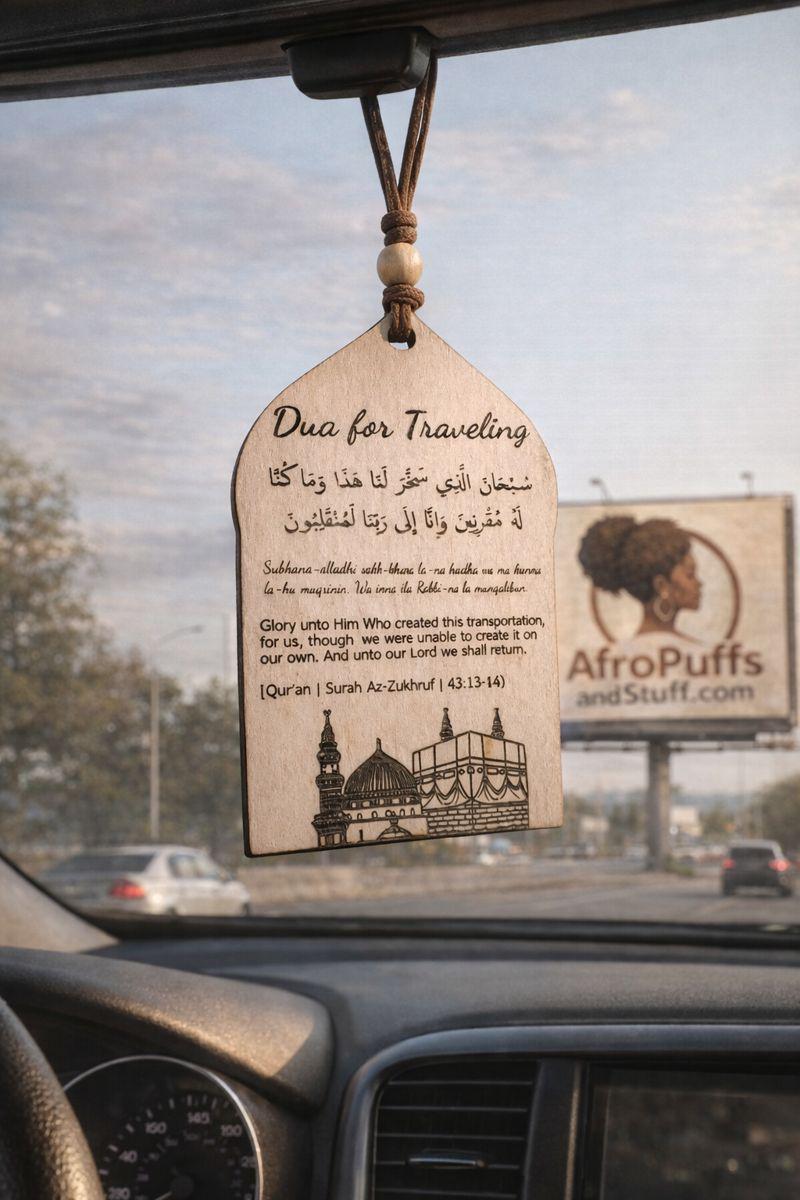 Dua for Traveling
سُبْحَانَ الَّذِي سَخَّرَ لَنَا هَذَا وَمَا كُنَّا
لَهُ مُقْرِنِينَ وَانَّا إِلَى رَبِّنَا لَمُنْقَلِبُونَ
Subhana-alladhi la-na hadha ma
la-hu muqrinin. Wa inna ila Rabbi-na la manqaliban.
Glory unto Him Who created this transportation,
for us, though we were unable to create it on
our own. And unto our Lord we shall return.
[Qur'an | Surah Az-Zukhruf | 43:13-14)
AfroPuffs
andStuff.com